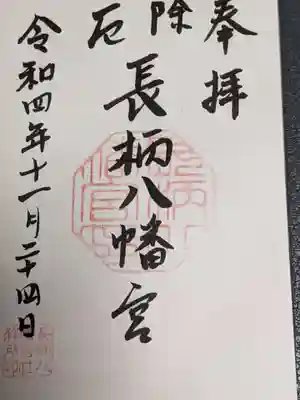 奉拝
厄除
長柄八幡宮
令和四年十一月二十四日